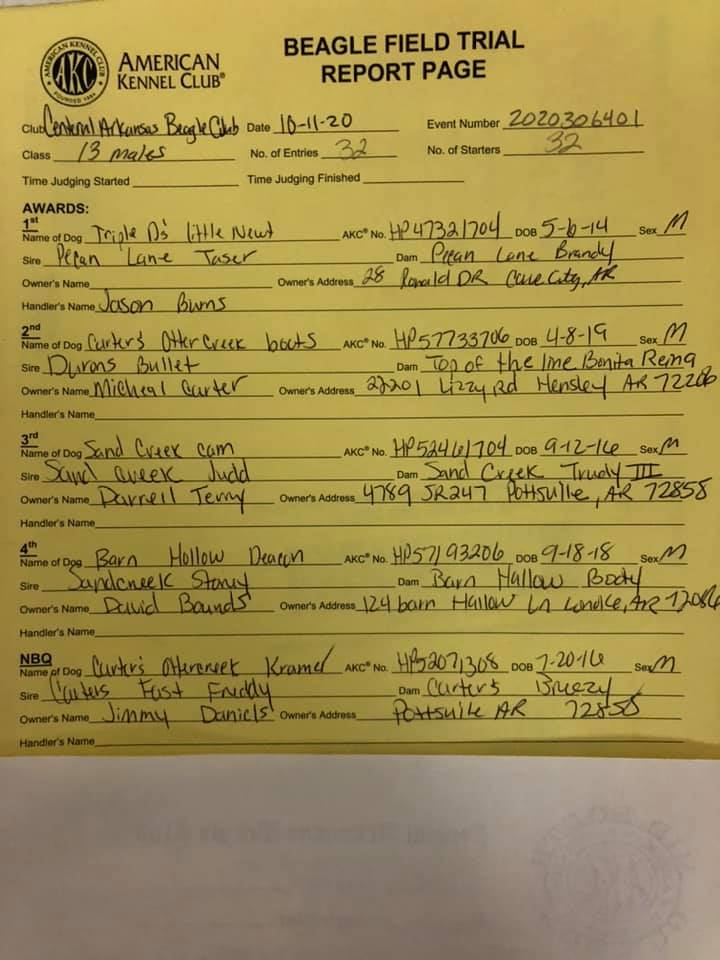 AMERICAN KENNEL CLUB
AKC
FOUNDED 1884
AMERICAN
KENNEL CLUB®
BEAGLE FIELD TRIAL
REPORT PAGE
Club Central Arkansas Beagle Club Date 10-11-20 Event Number 2020306401
Class 13 males No. of Entries 32 No. of Starters 32
Time Judging Started Time Judging Finished
AWARDS:
1st
Name of Dog Triple D's little Newt AKC® No. HP47321704 DOB 5-6-14 Sex M
Sire Pecan Lane Taser Dam Pecan Lane Brandy
Owner's Name Owner's Address 28 Ronald DR Cave City, AR
Handler's Name Jason Burns
2nd
Name of Dog Carter's Otter Creek boots AKC® No. HP57733706 DOB 4-8-19 Sex M
Sire Durons Bullet Dam Top of the line Bonita Reina
Owner's Name Micheal Carter Owner's Address 22201 Lizzy Rd Hensley AR 72206
Handler's Name
3rd
Name of Dog Sand Creek cam AKC® No. HP52461704 DOB 9-12-16 Sex M
Sire Sand creek Judd Dam Sand Creek Trudy III
Owner's Name Darrell Terry Owner's Address 4789 SR247 Pottsville, AR 72858
Handler's Name
4th
Name of Dog Barn Hollow Deacon AKC® No. HP57193206 DOB 9-18-18 Sex M
Sire Sandcreek Stoney Dam Barn Hallow Body
Owner's Name David Bounds Owner's Address 124 barn Hallow Ln Lonoke, AR 72086
Handler's Name
NBQ
Name of Dog Carter's Ottercreek Kramer AKC® No. HP52071308 DOB 7-20-16 Sex M
Sire Carters Fast Freddy Dam Carter's Breezy
Owner's Name Jimmy Daniels Owner's Address Pottsville AR 72858
Handler's Name